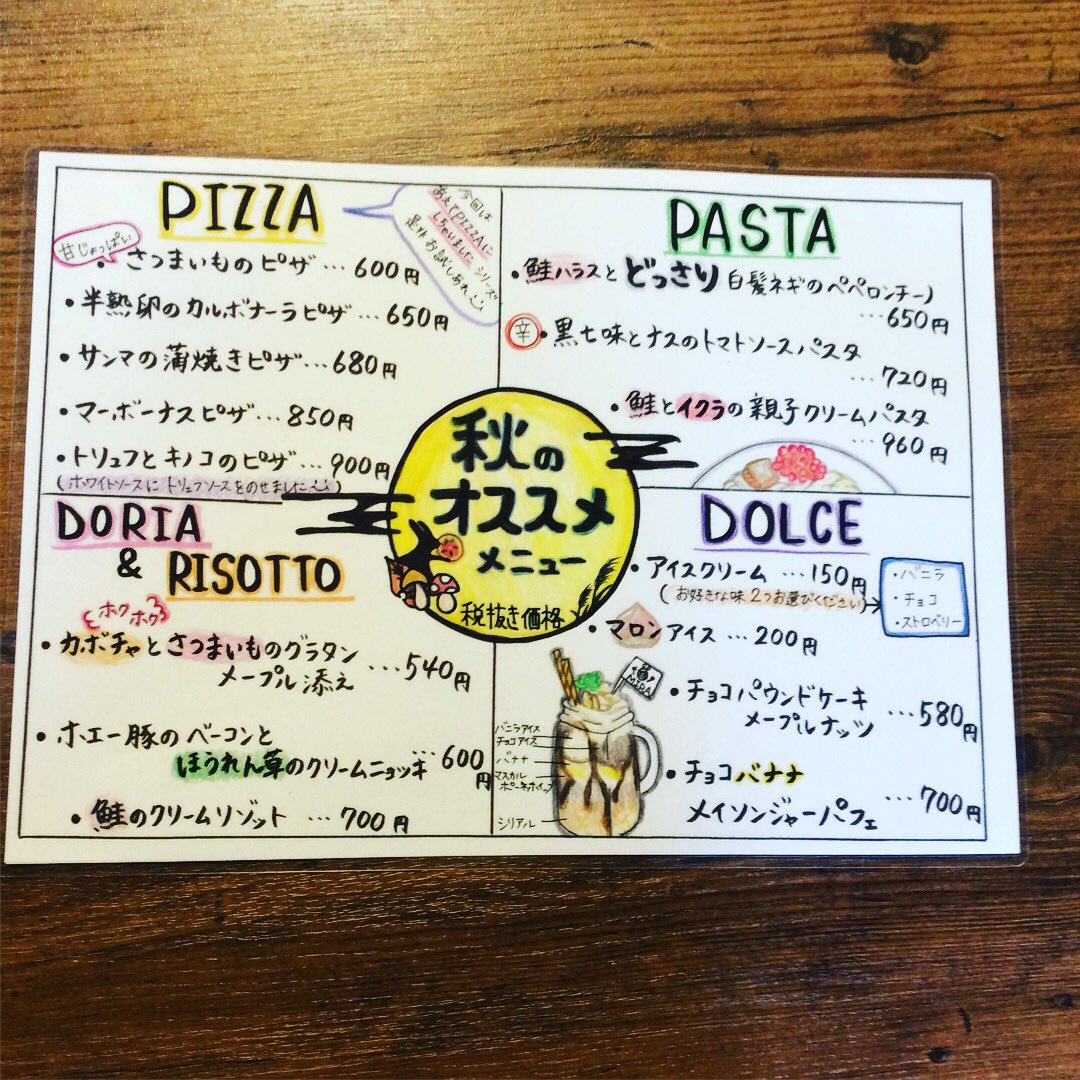 PIZZA
今回は
あえてPIZZAに
しちゃいました シリーズ
是非お試しあれ
甘じょっぱい
・さつまいものピザ…600円
・半熟卵のカルボナーラピザ…650円
・サンマの蒲焼きピザ…680円
・マーボーナスピザ…850円
・トリュフとキノコのピザ…900円
(ホワイトソースにトリュフソースをのせました)
PASTA
・鮭ハラスとどっさり白髪ネギのペペロンチーノ
…650円
辛・黒七味とナスのトマトソースパスタ
…720円
・鮭とイクラの親子クリームパスタ
…960円
秋の
オススメ
メニュー
税抜き価格
DORIA
& RISOTTO
ホクホク
・カボチャとさつまいものグラタン
メープル添え …540円
・ホエー豚のベーコンと
ほうれん草のクリームニョッキ …600円
・鮭のクリームリゾット …700円
DOLCE
・アイスクリーム …150円
(お好きな味2つお選びください)
・バニラ
・チョコ
・ストロベリー
・マロンアイス …200円
・チョコパウンドケーキ
メープルナッツ …580円
・チョコバナナ
メイソンジャーパフェ …700円
MIRA
バニラアイス
チョコアイス
バナナ
マスカル
ポーネホイップ
シリアル